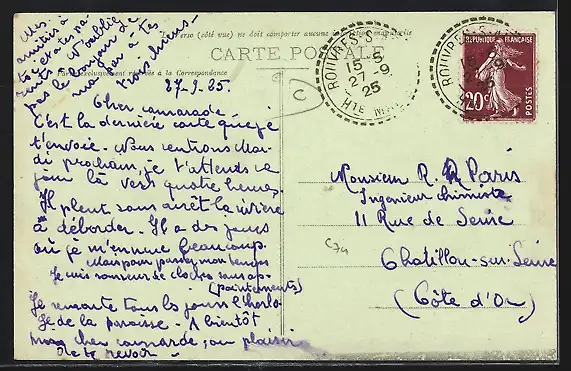 Mes
amitiés à
N'oublie
pas le bonjour à tes
Le verso (côté vue) ne doit comporter aucune
CARTE POSTALE
Partie exclusivement réservée à la Correspondance
C
ROUVRES-S-AUBE
15-5
27-9
25
Hte MARNE
ROUVRES-S-AUBE
REPUBLIQUE FRANÇAISE
20c
POSTES
27-9-25.
Cher camarade
C'est la dernière carte que je
t'envoie. Nous rentrons Mar-
di prochain, je t'attends ce
jour là vers quatre heures.
Il pleut sans arrêt la rivière
a débordé. Il y a des jours
où je m'ennue beaucoup.
Mais pour passer mon temps
Je suis sonneur de cloches sans ap-
(pointements)
Je remonte tous les jours l'horlo-
ge de la paroisse. A bientôt
mon cher camarade, au plaisir
de te revoir
Monsieur R. Paris
Ingénieur chimiste
11 Rue de Seine
Chatillon-sur-Seine
(Côte d'Or)